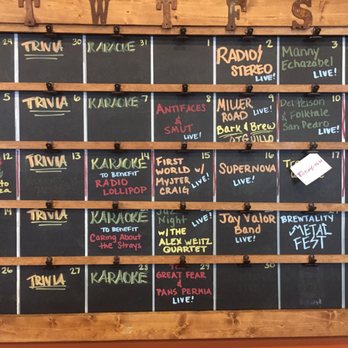 T W T F S
24 30 31 1 2 3
TRIVIA KARAOKE RADIO/ STEREO LIVE! Manny Echazabel LIVE!
5 6 7 8 9 10
TRIVIA KARAOKE ANTIFACES & SMUT LIVE! MILLER ROAD LIVE! Bark & Brew San Pedro LIVE!
12 13 14 15 16 17
TRIVIA KARAOKE TO BENEFIT RADIO LOLLIPOP FIRST WORLD w/ MYSTER CRAIG LIVE! SUPERNOVA LIVE!
KARAOKE TO BENEFIT Caring About the Strays
TRIVIA
Jaz Night w/ THE ALEX WEITZ QUARTET
Jay Valor Band LIVE!
BREWTALITY METAL FEST
26 27 28 29 30
TRIVIA KARAOKE THE GREAT FEAR & PANS PERMIA LIVE!